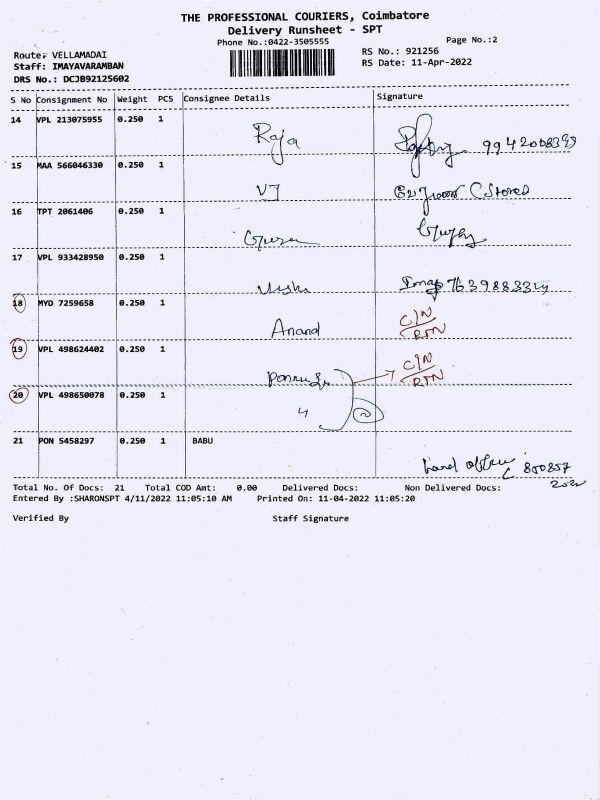 THE PROFESSIONAL COURIERS, Coimbatore
Delivery Runsheet - SPT
Phone No.:0422-3505555
Page No.:2
Route: VELLAMADAI
RS No.: 921256
Staff: IMAYAVARAMBAN
RS Date: 11-Apr-2022
DRS No.: DCJB92125602
S No Consignment No Weight PCS Consignee Details Signature
14 VPL 213075955 0.250 1
Raja
15 MAA 566046330 0.250 1
VJ
16 TPT 2061406 0.250 1
17 VPL 933428950 0.250 1
18 MYD 7259658 0.250 1
Anand C/N
RTN
19 VPL 498624402 0.250 1
C/N
RTN
20 VPL 498650078 0.250 1
21 PON 5458297 0.250 1 BABU
Total No. Of Docs: 21 Total COD Amt: 0.00 Delivered Docs: Non Delivered Docs:
Entered By :SHARONSPT 4/11/2022 11:05:10 AM Printed On: 11-04-2022 11:05:20
Verified By Staff Signature